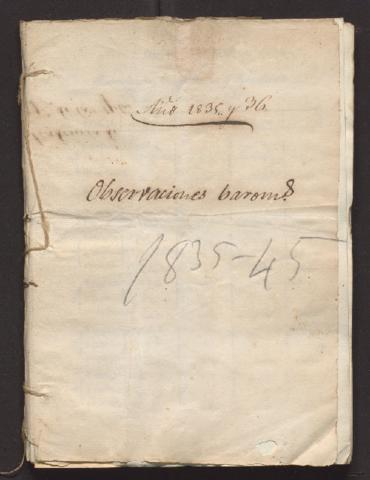 Año 1835 y 36
Observaciones barom.s
1835-45